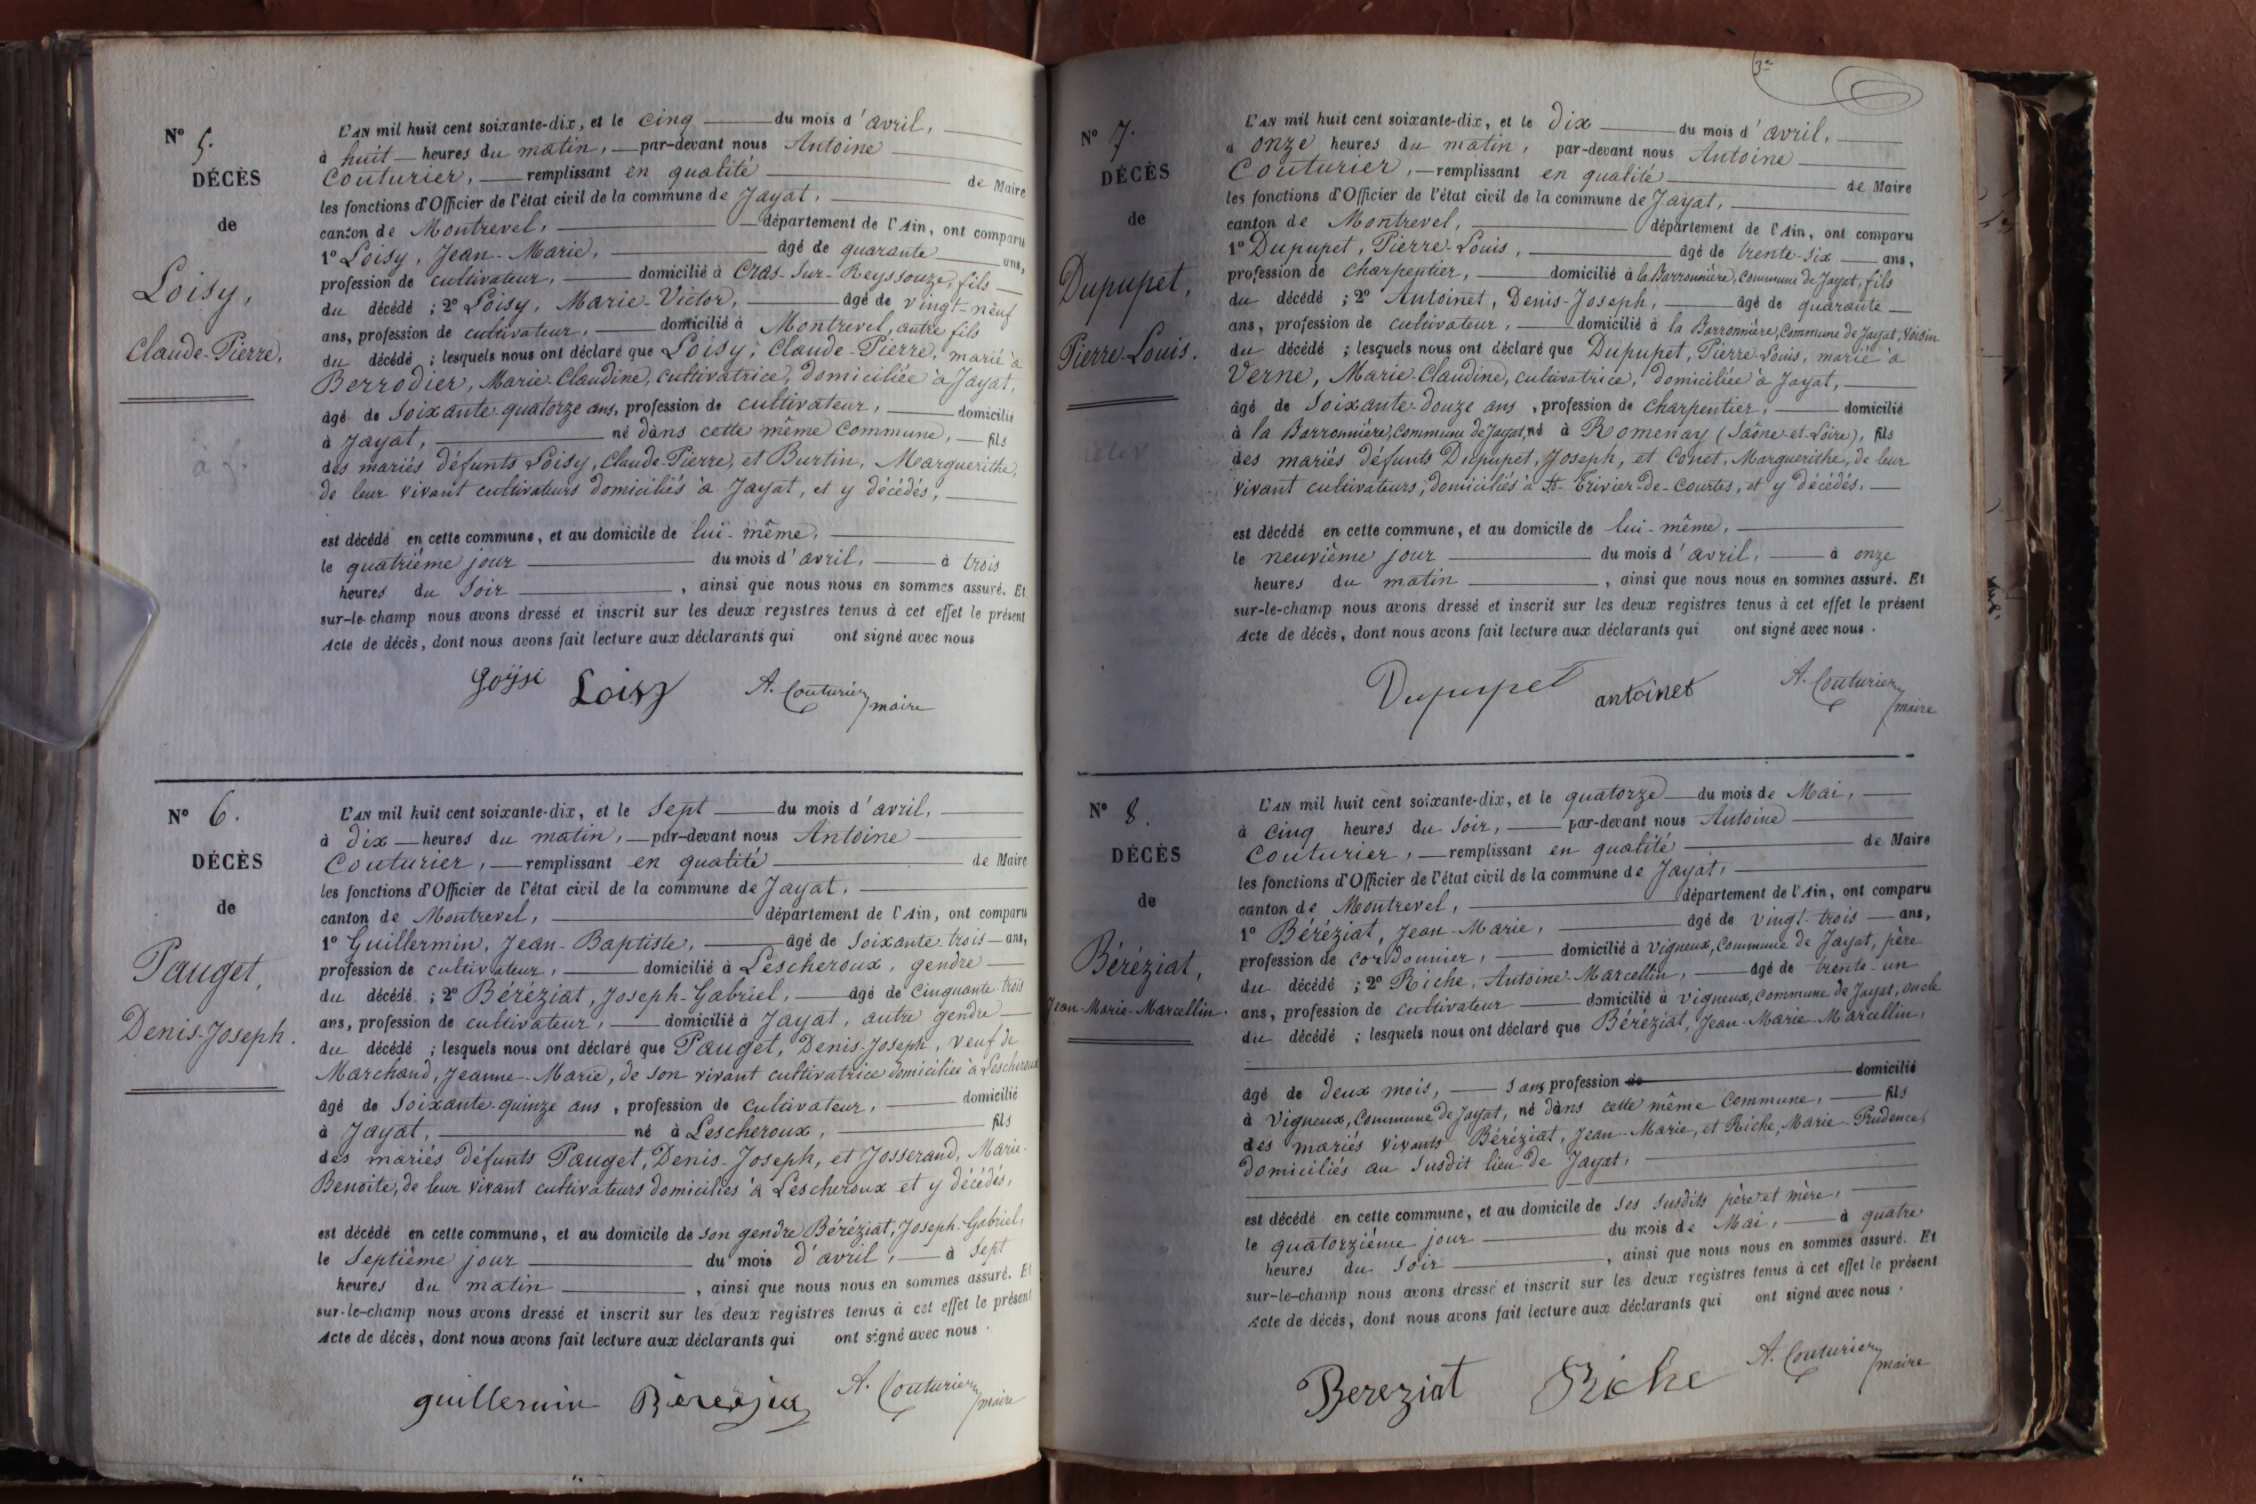 Nº 5.
DÉCÈS
de
Loisy,
Claude-Pierre.
L'AN mil huit cent soixante-dix, et le cinq du mois d'avril,
à huit heures du matin, par-devant nous Antoine
Couturier, remplissant en qualité de Maire
les fonctions d'Officier de l'état civil de la commune de Jayat,
canton de Montrevel, département de l'Ain, ont comparu
1º Loisy, Jean-Marie, âgé de quarante ans,
profession de cultivateur, domicilié à Cras-Sur-Reyssouze, fils
du décédé ; 2º Loisy, Marie-Victor, âgé de vingt-neuf
ans, profession de cultivateur, domicilié à Montrevel, autre fils
du décédé ; lesquels nous ont déclaré que Loisy, Claude-Pierre, marié à
Berrodier, Marie-Claudine, cultivatrice, domiciliée à Jayat,
âgé de soixante-quatorze ans, profession de cultivateur, domicilié
à Jayat, né dans cette même commune, fils
des mariés défunts Loisy, Claude-Pierre, et Burtin, Marguerithe,
de leur vivant cultivateurs domiciliés à Jayat, et y décédés,
est décédé en cette commune, et au domicile de lui-même,
le quatrième jour du mois d'avril, à trois
heures du soir, ainsi que nous nous en sommes assuré. Et
sur-le-champ nous avons dressé et inscrit sur les deux registres tenus à cet effet le présent
Acte de décès, dont nous avons fait lecture aux déclarants qui ont signé avec nous
Loisy A. Couturier
maire
Nº 6.
DÉCÈS
de
Pauget,
Denis-Joseph.
L'AN mil huit cent soixante-dix, et le sept du mois d'avril,
à dix heures du matin, par-devant nous Antoine
Couturier, remplissant en qualité de Maire
les fonctions d'Officier de l'état civil de la commune de Jayat,
canton de Montrevel, département de l'Ain, ont comparu
1º Guillermin, Jean-Baptiste, âgé de soixante-trois ans,
profession de cultivateur, domicilié à Lescheroux, gendre
du décédé ; 2º Béréziat, Joseph-Gabriel, âgé de cinquante-trois
ans, profession de cultivateur, domicilié à Jayat, autre gendre
du décédé ; lesquels nous ont déclaré que Pauget, Denis-Joseph, veuf de
Marchand, Jeanne-Marie, de son vivant cultivatrice domiciliée à Lescheroux
âgé de soixante-quinze ans, profession de cultivateur, domicilié
à Jayat, né à Lescheroux, fils
des mariés défunts Pauget, Denis-Joseph, et Josserand, Marie-
Benoite, de leur vivant cultivateurs domiciliés à Lescheroux et y décédés,
est décédé en cette commune, et au domicile de son gendre Béréziat, Joseph-Gabriel,
le septième jour du mois d'avril, à sept
heures du matin, ainsi que nous nous en sommes assuré. Et
sur-le-champ nous avons dressé et inscrit sur les deux registres tenus à cet effet le présent
Acte de décès, dont nous avons fait lecture aux déclarants qui ont signé avec nous.
guillermin A. Couturier
maire
Nº 7.
DÉCÈS
de
Dupupet,
Pierre-Louis.
L'AN mil huit cent soixante-dix, et le dix du mois d'avril,
à onze heures du matin, par-devant nous Antoine
Couturier, remplissant en qualité de Maire
les fonctions d'Officier de l'état civil de la commune de Jayat,
canton de Montrevel, département de l'Ain, ont comparu
1º Dupupet, Pierre-Louis, âgé de trente-six ans,
profession de charpentier, domicilié à la Barronnière, Commune de Jayat, fils
du décédé ; 2º Antoinet, Denis-Joseph, âgé de quarante
ans, profession de cultivateur, domicilié à la Barronnière, Commune de Jayat, voisin
du décédé ; lesquels nous ont déclaré que Dupupet, Pierre-Louis, marié à
Verne, Marie-Claudine, cultivatrice, domiciliée à Jayat,
âgé de soixante-douze ans, profession de charpentier, domicilié
à la Barronnière, Commune de Jayat, né à Romenay (Saône-et-Loire), fils
des mariés défunts Dupupet, Joseph, et Conet, Marguerithe, de leur
vivant cultivateurs, domiciliés à St-Trivier-de-Courtes, et y décédés,
est décédé en cette commune, et au domicile de lui-même,
le neuvième jour du mois d'avril, à onze
heures du matin, ainsi que nous nous en sommes assuré. Et
sur-le-champ nous avons dressé et inscrit sur les deux registres tenus à cet effet le présent
Acte de décès, dont nous avons fait lecture aux déclarants qui ont signé avec nous.
Dupupet antoinet A. Couturier
maire
Nº 8.
DÉCÈS
de
Béréziat,
Jean-Marie-Marcellin.
L'AN mil huit cent soixante-dix, et le quatorze du mois de Mai,
à cinq heures du soir, par-devant nous Antoine
Couturier, remplissant en qualité de Maire
les fonctions d'Officier de l'état civil de la commune de Jayat,
canton de Montrevel, département de l'Ain, ont comparu
1º Béréziat, Jean-Marie, âgé de vingt-trois ans,
profession de cordonnier, domicilié à Vigneux, Commune de Jayat, père
du décédé ; 2º Riche, Antoine-Marcellin, âgé de trente-un
ans, profession de cultivateur domicilié à Vigneux, Commune de Jayat, oncle
du décédé ; lesquels nous ont déclaré que Béréziat, Jean-Marie-Marcellin,
âgé de deux mois, sans profession de domicilié
à Vigneux, Commune de Jayat, né dans cette même commune, fils
des mariés vivants Béréziat, Jean-Marie, et Riche, Marie-Prudence,
domiciliés au susdit lieu de Jayat,
est décédé en cette commune, et au domicile de ses susdits père et mère,
le quatorzième jour du mois de Mai, à quatre
heures du soir, ainsi que nous nous en sommes assuré. Et
sur-le-champ nous avons dressé et inscrit sur les deux registres tenus à cet effet le présent
Acte de décès, dont nous avons fait lecture aux déclarants qui ont signé avec nous.
Bereziat Riche A. Couturier
maire